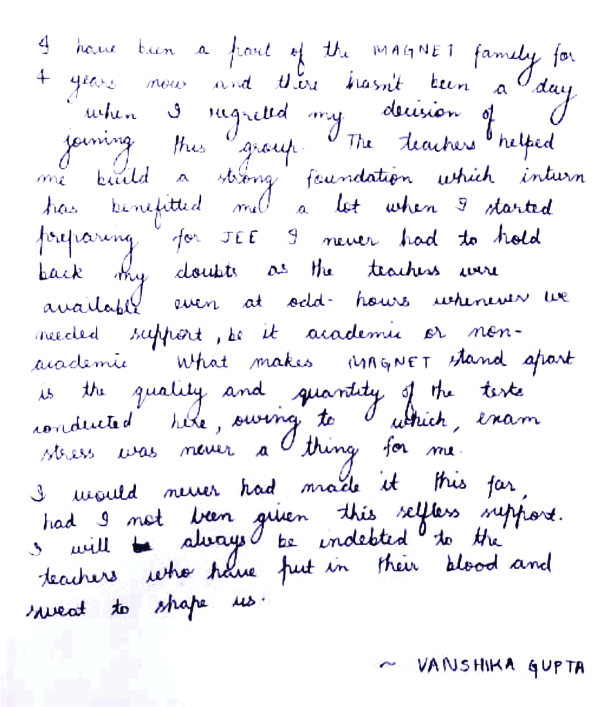 I have been a part of the MAGNET family for
4 years now and there hasn't been a day
when I regretted my decision of
joining this group. The teachers helped
me build a strong foundation which inturn
has benefitted me a lot when I started
preparing for JEE I never had to hold
back my doubts as the teachers were
available even at odd-hours whenever we
needed support, be it academic or non-
academic What makes MAGNET stand apart
is the quality and quantity of the tests
conducted here, owing to which, exam
stress was never a thing for me.
I would never had made it this far,
had I not been given this selfless support.
I will always be indebted to the
teachers who have put in their blood and
sweat to shape us.
~ VANSHIKA GUPTA